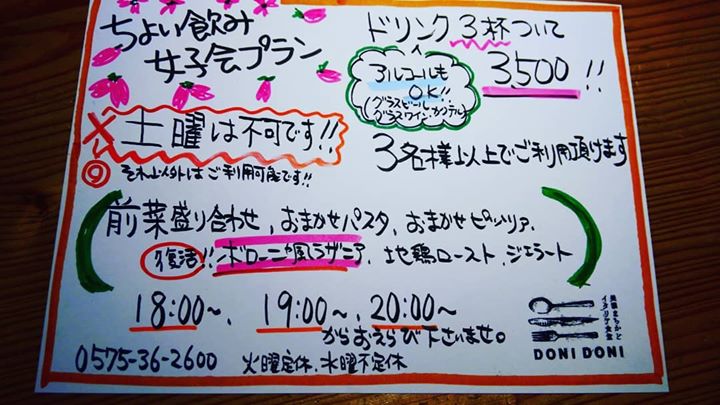 ちょい飲み
女子会プラン
ドリンク3杯ついて
3,500!!
アルコールも
OK!!
(グラスビール、
グラスワイン・カクテル)
×土曜は不可です!!
◎それ以外はご利用可能です!!
3名様以上でご利用頂けます
前菜盛り合わせ、おまかせパスタ、おまかせピッツァ、
復活!!ボローニャ風ラザニア、地鶏ロースト、ジェラート
18:00~、19:00~、20:00~
からおえらび下さいませ。
0575-36-2600 火曜定休、水曜不定休
美濃まちかど
イタリア食堂
DONI DONI